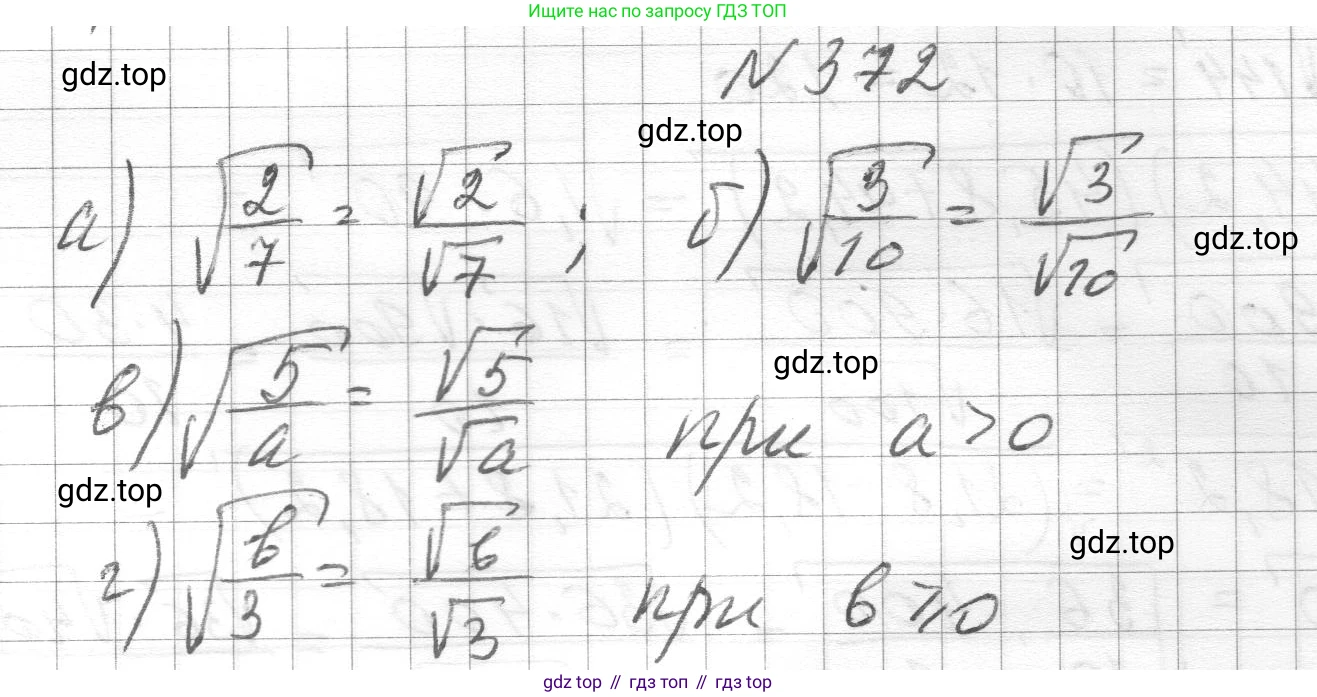 Ищите нас по запросу ГДЗ ТОП
gdz.top
N 372
gdz.top
а) √(2/7) = √2/√7 ; б) √(3/10) = √3/√10
gdz.top
в) √(5/a) = √5/√a при a > 0
gdz.top
gdz.top
г) √(b/3) = √b/√3 при b ⩾ 0
gdz.top
gdz top // гдз топ // гдз top